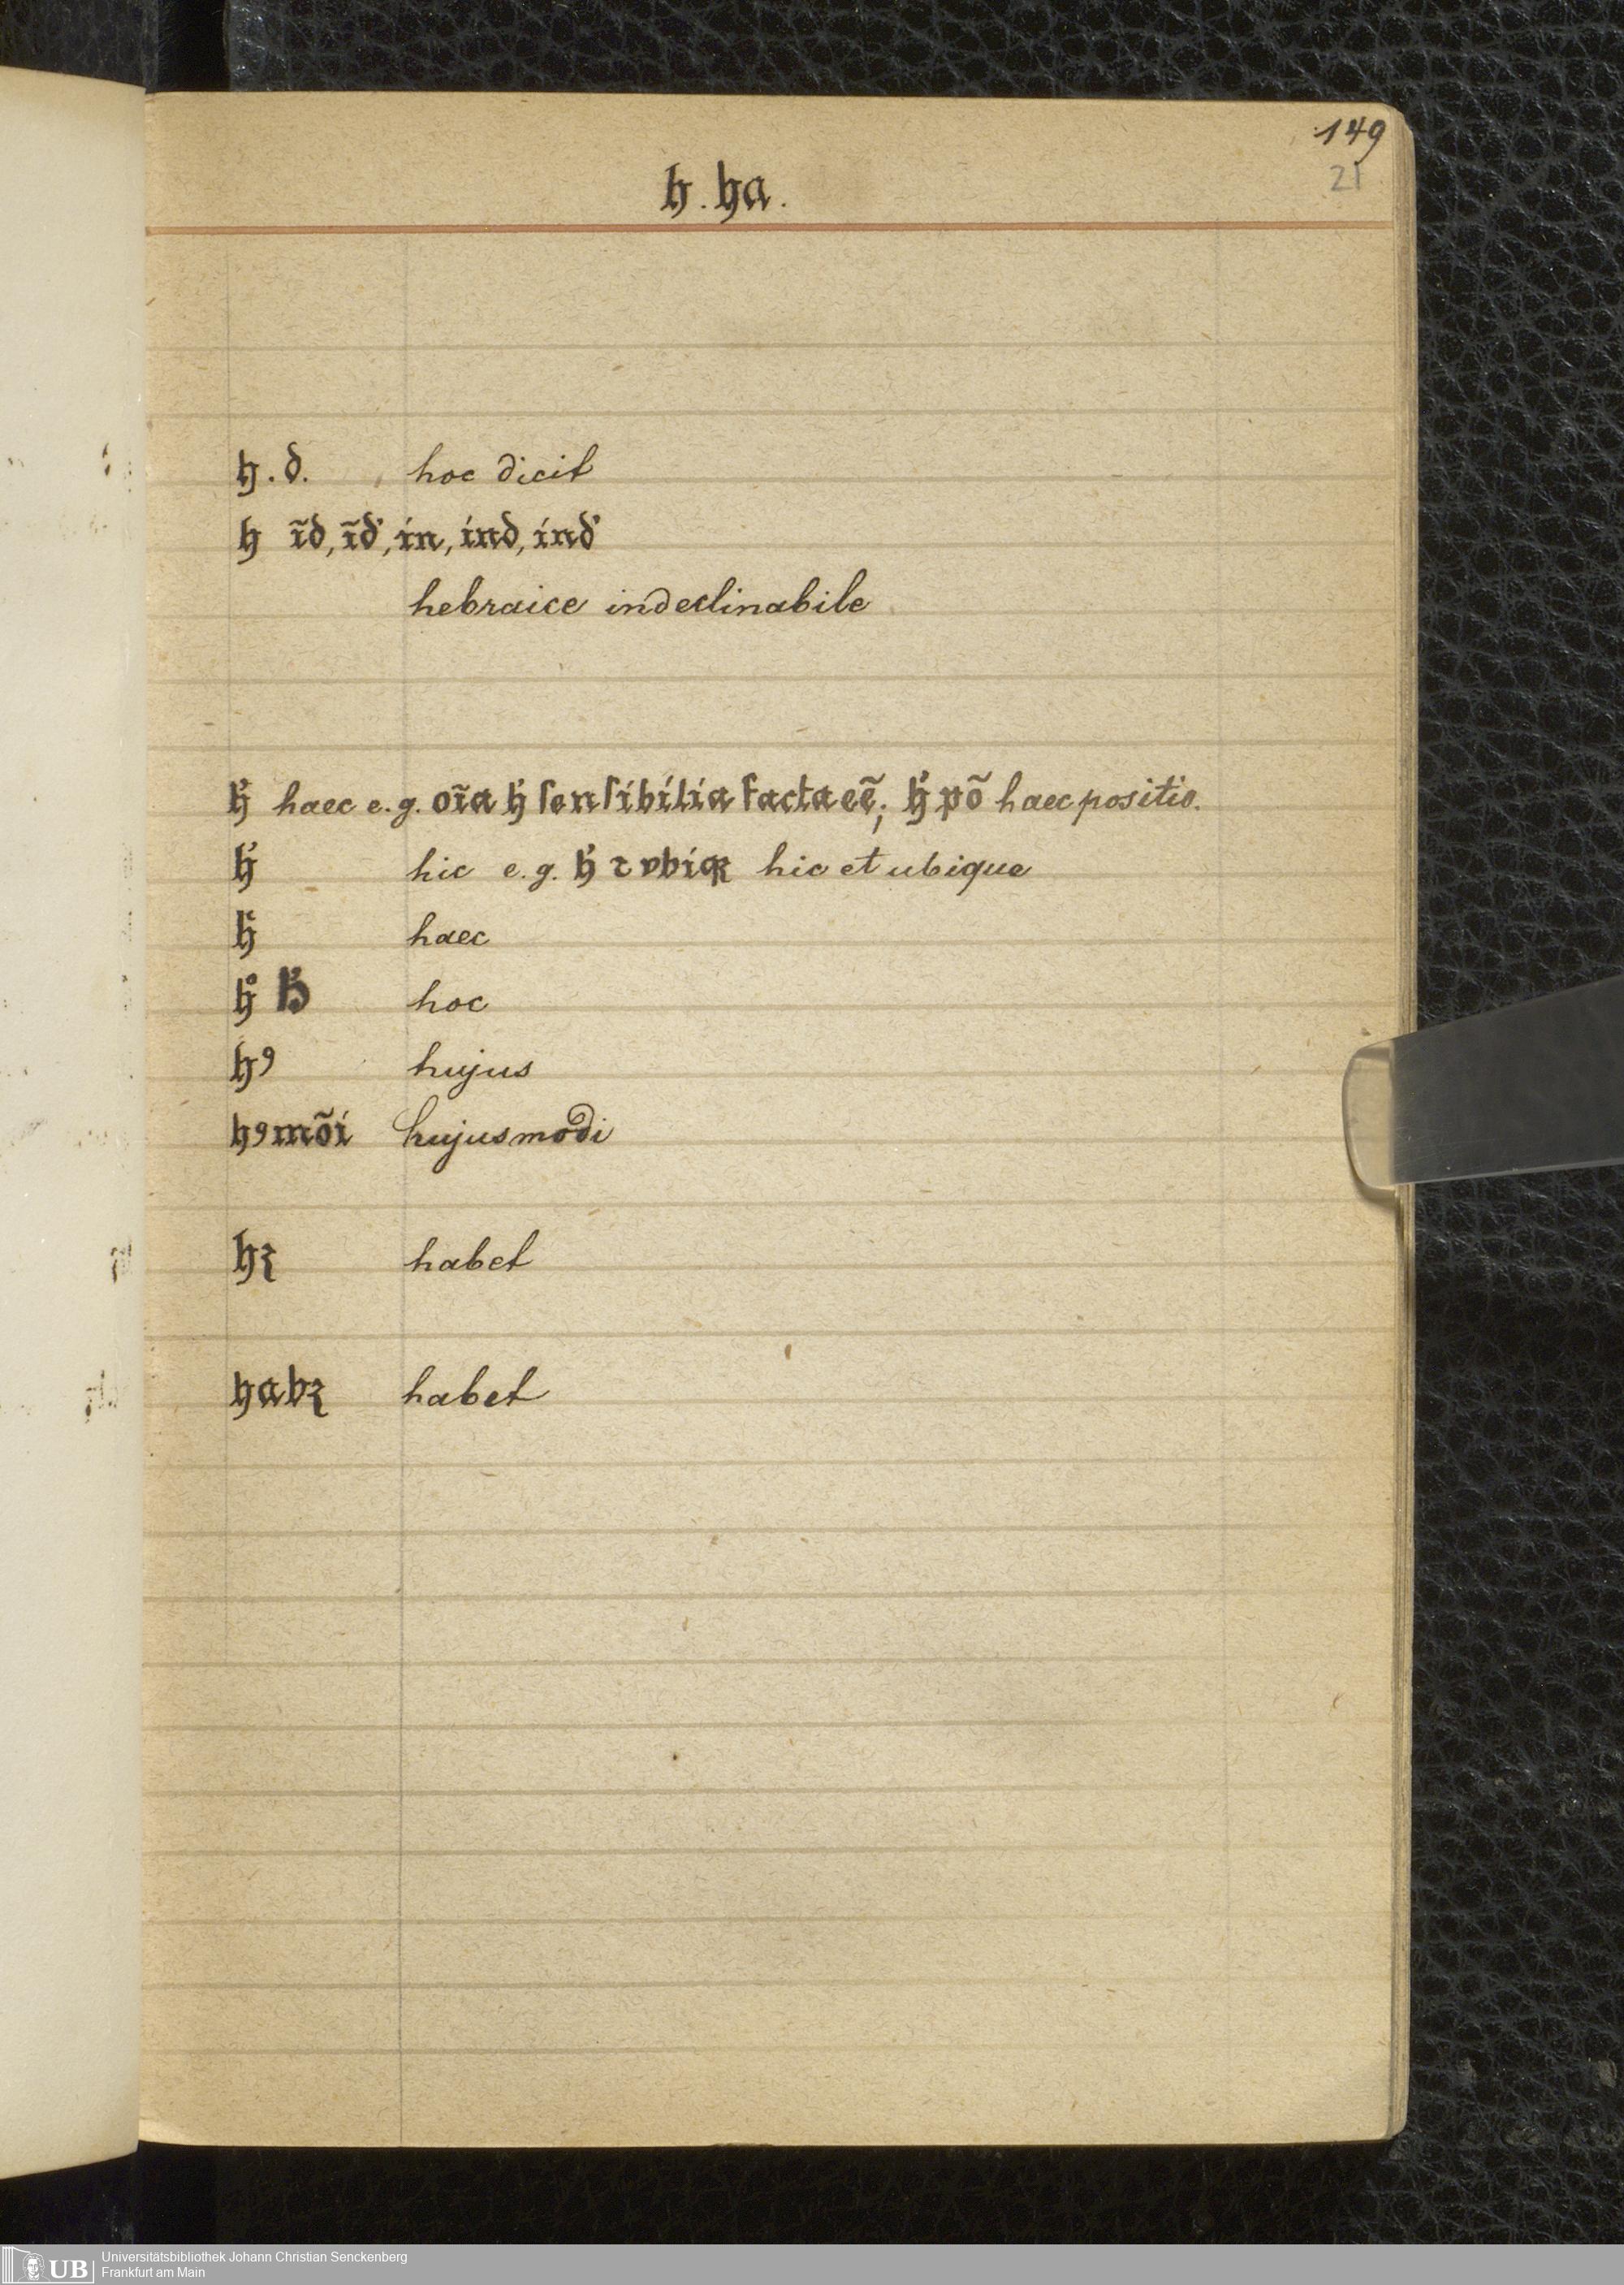 149
21
h. ha.
h. d. hoc dicit
h ĩd, ĩd', in, ind, ind'
hebraice indeclinabile
h' haec e. g. oĩa h' ſenſibilia facta eẽ; h' põ haec positio.
h' hic e. g. h' ⁊ vbiqꝫ hic et ubique
h haec
h° hoc
hꝯ hujus
hꝯmõi hujusmodi
hꝫ habet
habꝫ habet
UB
Universitätsbibliothek Johann Christian Senckenberg
Frankfurt am Main